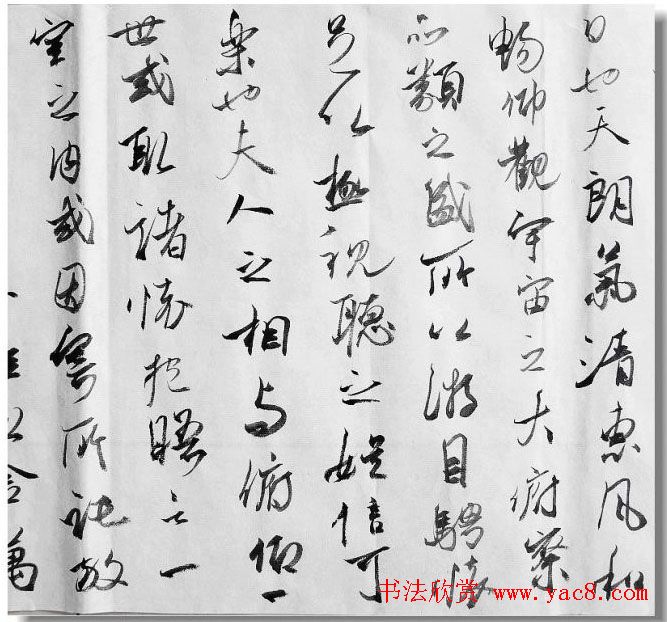 日也天朗氣清惠风和
暢仰觀宇宙之大俯察
品類之盛所以游目騁懷
足以極視聽之娛信可
樂也夫人之相与俯仰一
世或取諸懷抱晤言一
室之内或因寄所託放
書法欣赏 www.yac8.com